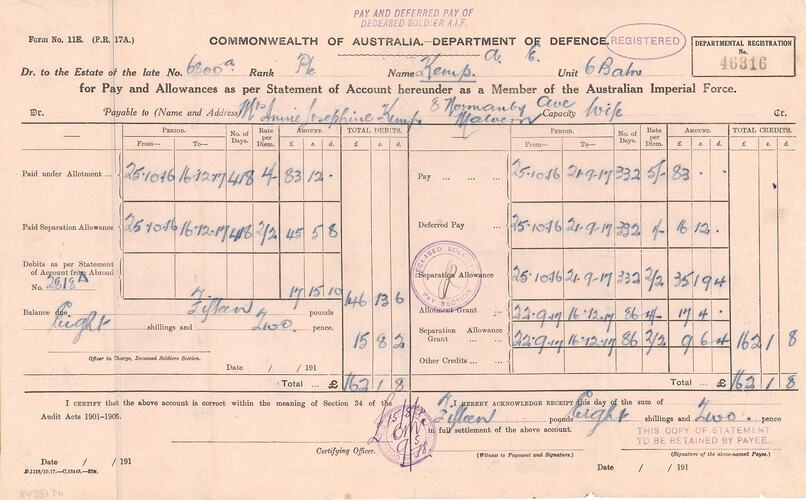 PAY AND DEFERRED PAY OF
DECEASED SOLDIER A.I.F.
Form No. 11E. (P.R. 17A.)
COMMONWEALTH OF AUSTRALIA.—DEPARTMENT OF DEFENCE.
REGISTERED
DEPARTMENTAL REGISTRATION
No.
46316
Dr. to the Estate of the late No. 6800a Rank Pte Name Kemp. A. E. Unit 6 Batn
for Pay and Allowances as per Statement of Account hereunder as a Member of the Australian Imperial Force.
Dr. Payable to (Name and Address) Mrs Annie Josephine Kemp 8 Normanby Ave Malvern Capacity Wife Cr.
PERIOD. No. of Days. Rate per Diem. AMOUNT. TOTAL DEBITS. PERIOD. No. of Days. Rate per Diem. AMOUNT. TOTAL CREDITS.
From— To— £ s. d. £ s. d. From— To— £ s. d. £ s. d.
Paid under Allotment ... 25.10.16 16.12.17 418 4/- 83 12 .
Pay ... ... ... 25.10.16 21.9.17 332 5/- 83 . .
Paid Separation Allowance 25.10.16 16.12.17 418 2/2 45 5 8
Deferred Pay ... 25.10.16 21.9.17 332 1/- 16 12 .
Debits as per Statement
of Account from Abroad
No. 2818A 17 15 10 146 13 6
DECEASED SOLDIERS
PAY SECTION
Separation Allowance 25.10.16 21.9.17 332 2/2 35 19 4
Allotment Grant ... 22.9.17 16.12.17 86 4/- 17 4 .
Separation Allowance
Grant ... ... 22.9.17 16.12.17 86 2/2 9 6 4 162 1 8
Other Credits ... ...
Balance due Fifteen pounds
Eight shillings and Two. pence. 15 8 2
Officer in Charge, Deceased Soldiers Section.
Date / / 191
Total ... £ 162 1 8
Total ... £ 162 1 8
I CERTIFY that the above account is correct within the meaning of Section 34 of the
Audit Acts 1901-1906.
Certifying Officer.
Date / / 191
D.1118/10.17.—C.12443.—32M.
I HEREBY ACKNOWLEDGE RECEIPT this day of the sum of
Fifteen pounds Eight shillings and Two. pence
in full settlement of the above account.
THIS COPY OF STATEMENT
TO BE RETAINED BY PAYEE.
(Witness to Payment and Signature.)
(Signature of the above-named Payee.)
Date / / 191